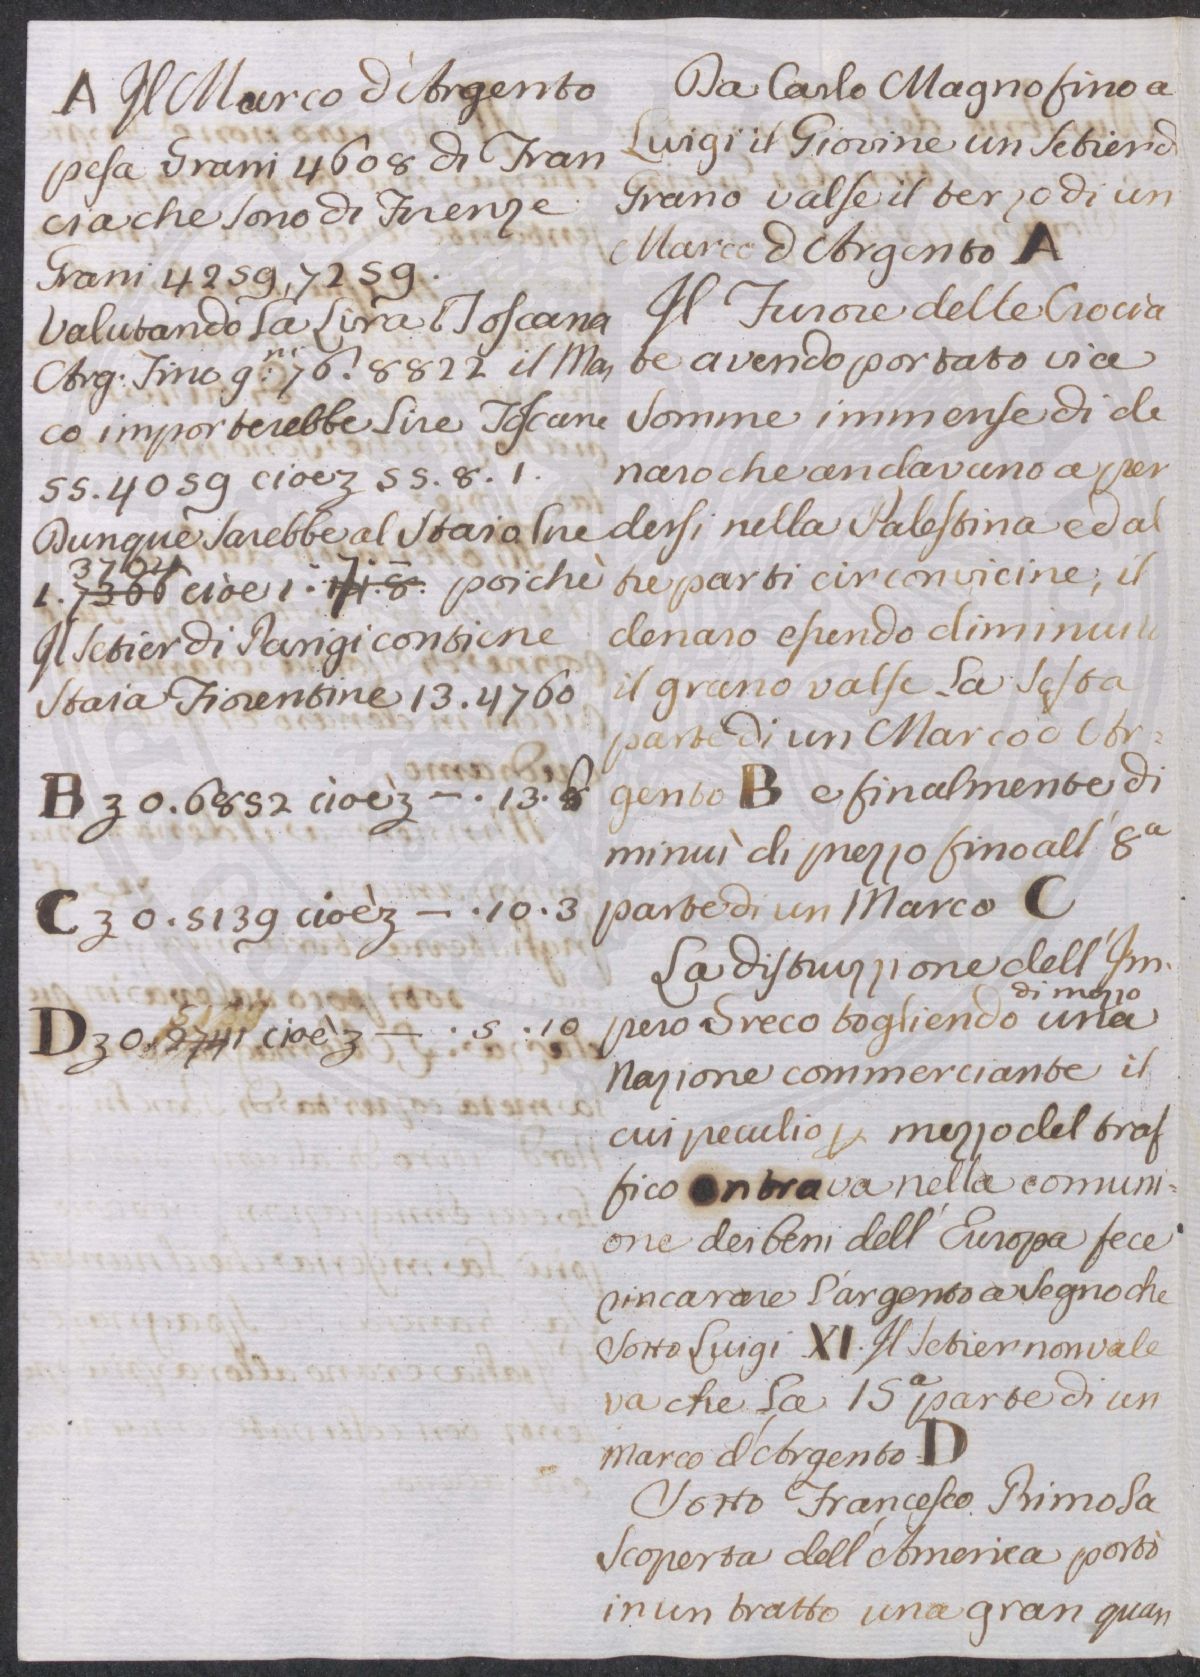 A Il Marco d'Argento
pesa Grani 4608 di Fran
cia che sono di Firenze
Grani 4259,7259.
Valutando la Lira Toscana
Arg. Fino g.ni 76.8822 il Mar
co importerebbe Lire Toscane
55.4059 cioè 55.8.1.
Dunque sarebbe al Staio Lire
1.3704 cioè 1.7. poichè
Il Setier di Parigi contiene
Staia Fiorentine 13.4760
B 0.6852 cioè — .13.8
C 0.5139 cioè — .10.3
D 0.2741 cioè — .5.10
Da Carlo Magno fino a
Luigi il Giovine un Setier di
Grano valse il terzo di un
Marco d'Argento A
Il Furore delle Crocia
te avendo portato via
somme immense di de
naro che andavano a per
dersi nella Palestina ed al
tre parti circonvicine, il
denaro essendo diminuito
il grano valse la Sesta
parte di un Marco d'Ar=
gento B e finalmente di
minuì di prezzo fino all' 8a
parte di un Marco C
La distruzzione dell' Im.
pero Greco togliendo di mezzo una
Nazione commerciante il
cui peculio p mezzo del traf
fico entrava nella comuni=
one dei beni dell' Europa fece
rincarare l'argento a segno che
sotto Luigi XI. Il Setier non vale
va che la 15a parte di un
marco d'Argento D
Sotto Francesco Primo la
scoperta dell' America portò
in un tratto una gran quan